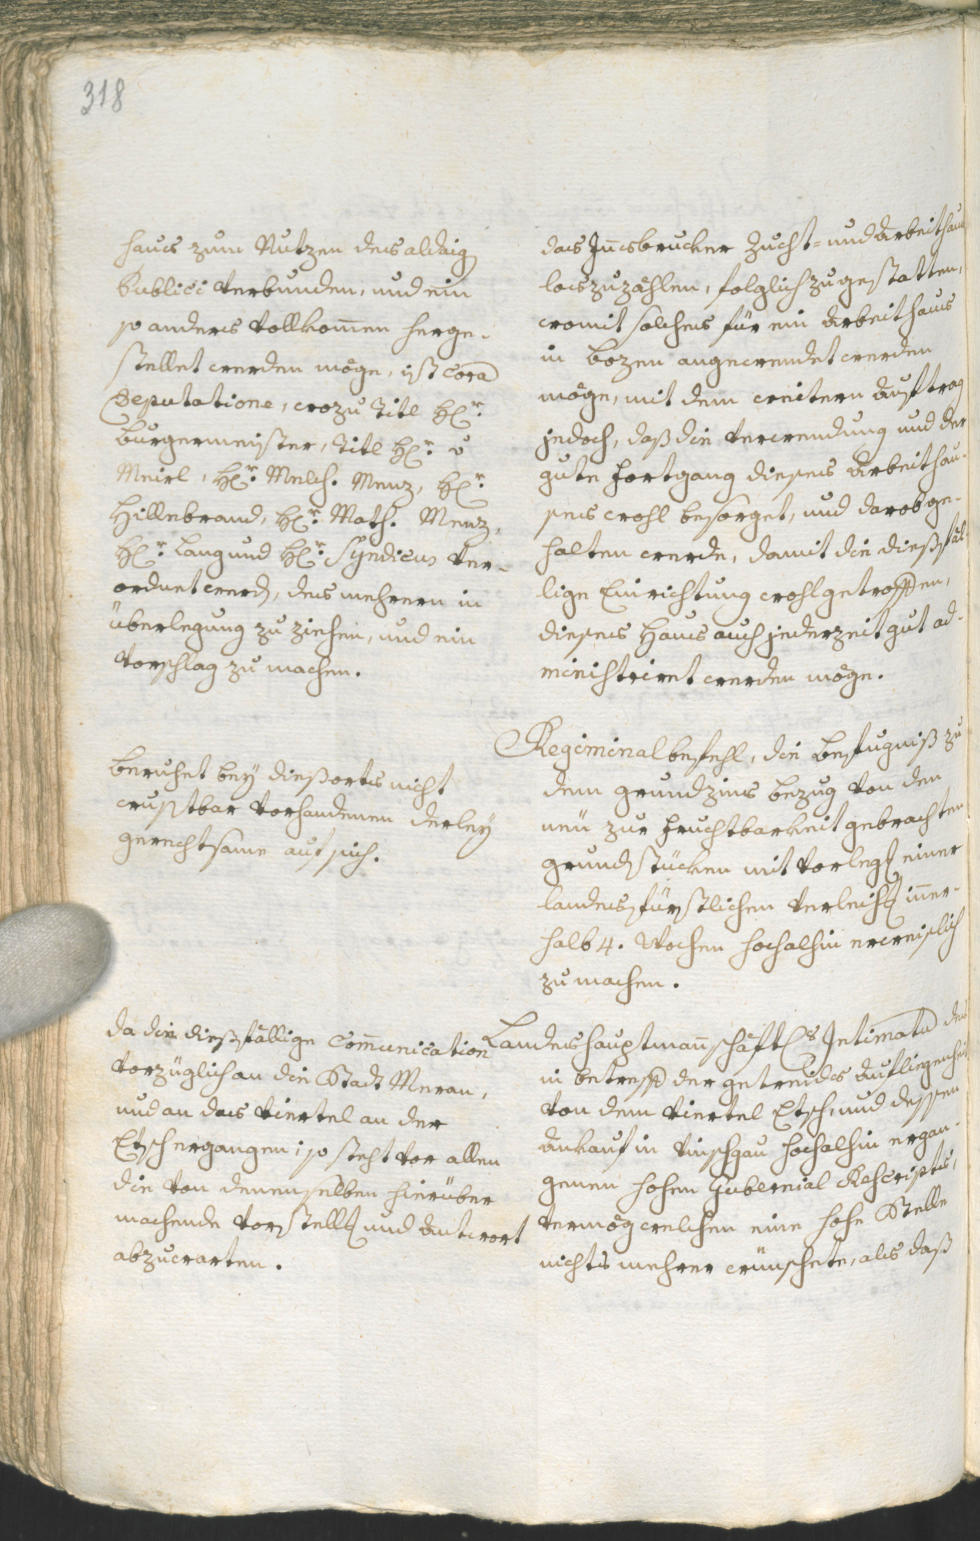 318
haus zum Nutzen des aldaig
Publici verbunden, und ein
so anders vollkommen herge-
stellet werden möge, ist Cora
Deputatione, wozu Titl Hr.
Burgermeister, Titl Hr. v
Meirl, Hr. Melch. Menz, Hr.
Hillebrand, Hr. Math. Menz,
Hr. Lang und Hr. Syndicus ver-
ordnet werd, des mehrern in
Überlegung zu ziehen, und ein
Vorschlag zu machen.
beruhet bey diesorts nicht
wustbar vorhandenen derley
gerechtsame auf sich.
da die diesfällige Communication
vorzüglich an die Stadt Meran,
und an das Viertel an der
Etsch ergangen; so steht vor allen
die von denenselben hierüber
machende Vorstellg und Antwort
abzuwarten.
das Insbrucker Zucht- und Arbeithaus
loszuzählen, folglich zu gestatten,
womit solches für ein Arbeithaus
in Bozen angewendet werden
möge, mit dem weitern Auftrag
jedoch, daß die verwendung und der
gute Fortgang dieses Arbeithau-
ses wohl besorget, und darob ge-
halten werde, damit die diesfäl-
lige Einrichtung wohl getroffen,
dieses Haus auch jederzeit gut ad-
ministriret werden möge.
Regiminalbefehl, die befugniß zu
dem grundzins bezug von den
neu zur Fruchtbarkeit gebrachten
grundstücken mit vorlegg einer
landesfürstlichen verleihg inner-
halb 4. Wochen hochalhin erweislich
zu machen.
Landeshauptmannschäftls Intimatum des
in betreff der getreides Aufliegenheit
von dem Viertel Etsch, und dessen
Ankauf in Vinschgau hochalhin ergan-
genen hohen Gubernial Rescripts,
vermög welchen eine hohe Stelle
nichts mehrer wünschete, als daß